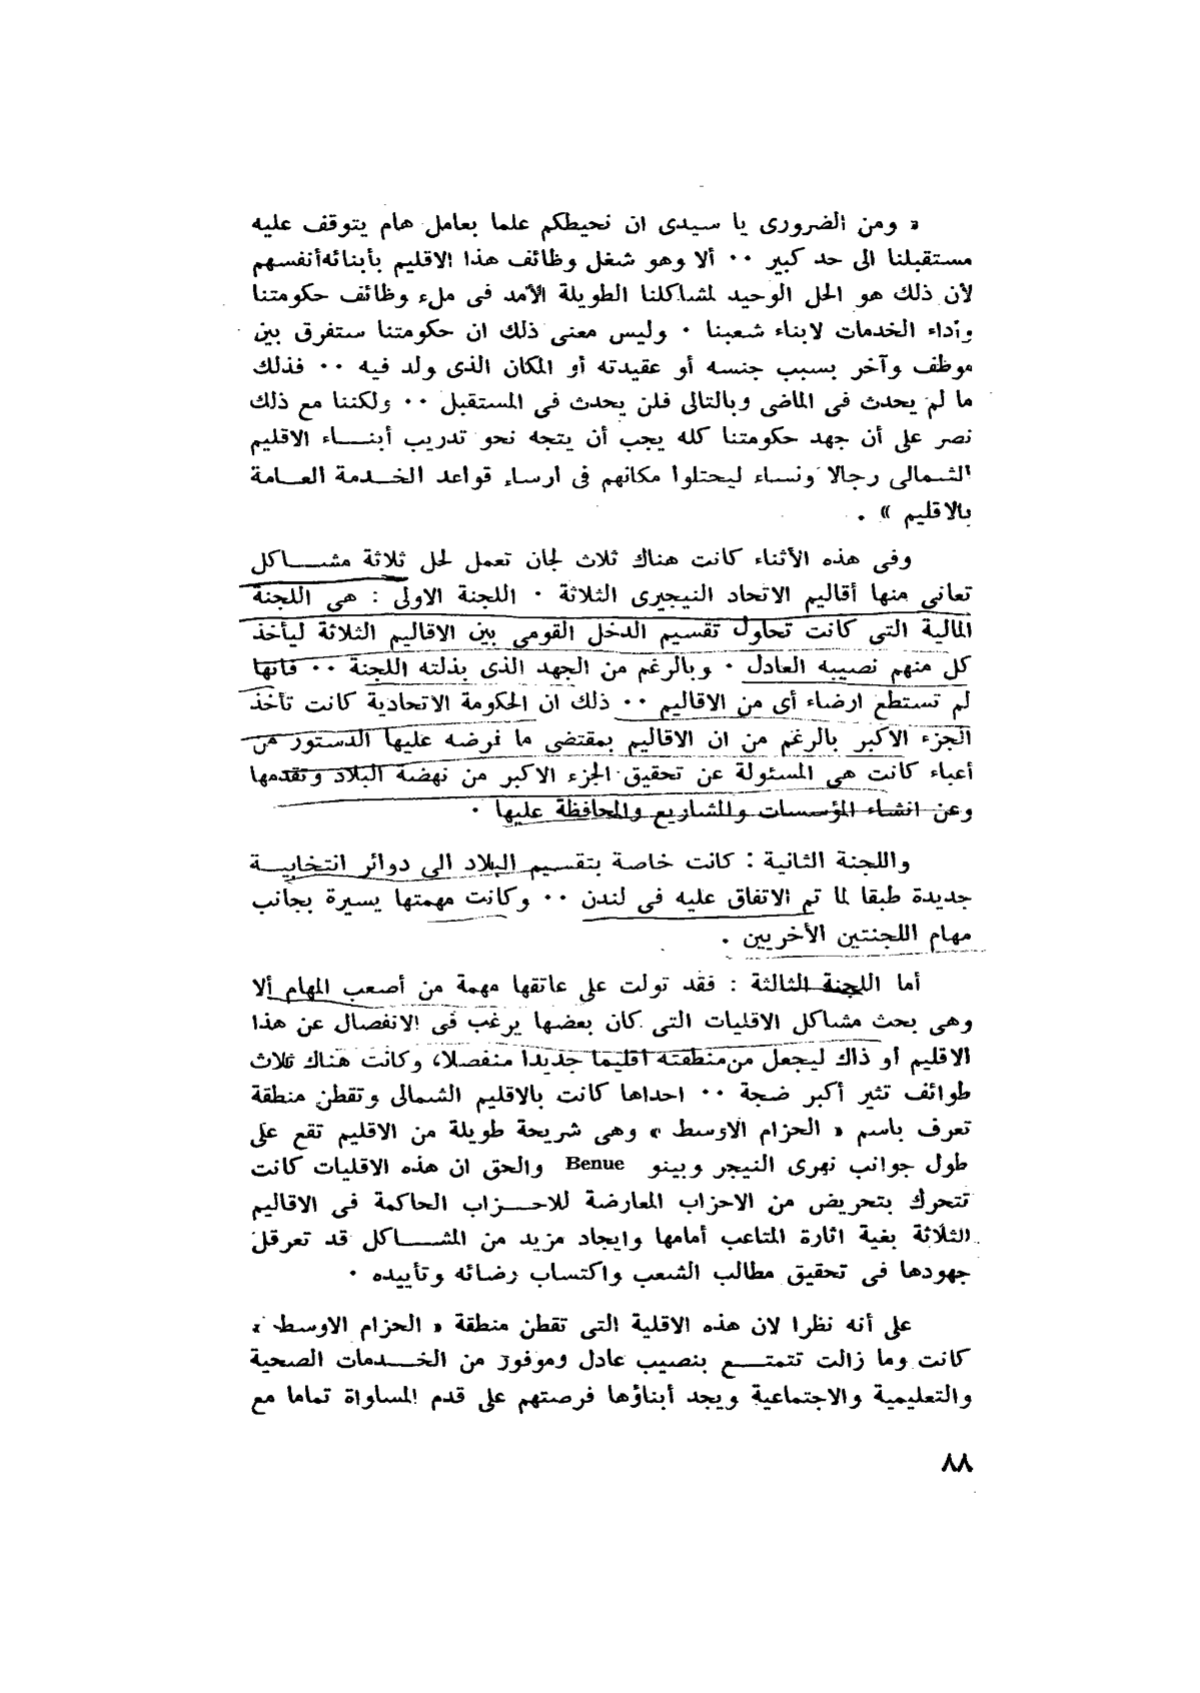 « ومن الضرورى يا سيدى ان نحيطكم علما بعامل هام يتوقف عليه
مستقبلنا الى حد كبير ٠٠ ألا وهو شغل وظائف هذا الاقليم بأبنائه أنفسهم
لأن ذلك هو الحل الوحيد لمشاكلنا الطويلة الأمد فى ملء وظائف حكومتنا
وأداء الخدمات لابناء شعبنا ٠ وليس معنى ذلك ان حكومتنا ستفرق بين
موظف وآخر بسبب جنسه أو عقيدته أو المكان الذى ولد فيه ٠٠ فذلك
ما لم يحدث فى الماضى وبالتالى فلن يحدث فى المستقبل ٠٠ ولكننا مع ذلك
نصر على أن جهد حكومتنا كله يجب أن يتجه نحو تدريب أبنـــاء الاقليم
الشـمالى رجالا ونساء ليحتلوا مكانهم فى ارساء قواعد الخـدمة العـامة
بالاقليم » .
وفى هذه الأثناء كانت هناك ثلاث لجان تعمل لحل ثلاثة مشـــاكل
تعانى منها أقاليم الاتحاد النيجيرى الثلاثة ٠ اللجنة الاولى : هى اللجنة
المالية التى كانت تحاول تقسيم الدخل القومى بين الاقاليم الثلاثة ليأخذ
كل منهم نصيبه العادل ٠ وبالرغم من الجهد الذى بذلته اللجنة ٠٠ فانها
لم تستطع ارضاء أى من الاقاليم ٠٠ ذلك ان الحكومة الاتحادية كانت تأخذ
الجزء الاكبر بالرغم من ان الاقاليم بمقتضى ما فرضه عليها الدستور من
أعباء كانت هى المسئولة عن تحقيق الجزء الاكبر من نهضة البلاد وتقدمها
وعن انشاء المؤسسات والمشاريع والمحافظة عليها ٠
واللجنة الثانية : كانت خاصة بتقسيم البلاد الى دوائر انتخابيـة
جديدة طبقا لما تم الاتفاق عليه فى لندن ٠٠ وكانت مهمتها يسيرة بجانب
مهام اللجنتين الأخريين .
أما اللجنة الثالثة : فقد تولت على عاتقها مهمة من أصعب المهام ألا
وهى بحث مشاكل الاقليات التى كان بعضها يرغب فى الانفصال عن هذا
الاقليم أو ذاك ليجعل من منطقته اقليما جديدا منفصلا، وكانت هناك ثلاث
طوائف تثير أكبر ضجة ٠٠ احداها كانت بالاقليم الشمالى وتقطن منطقة
تعرف باسم « الحزام الاوسط » وهى شريحة طويلة من الاقليم تقع على
طول جوانب نهرى النيجر وبينو Benue والحق ان هذه الاقليات كانت
تتحرك بتحريض من الاحزاب المعارضة للاحـــزاب الحاكمة فى الاقاليم
الثلاثة بغية اثارة المتاعب أمامها وايجاد مزيد من المشـــاكل قد تعرقل
جهودها فى تحقيق مطالب الشعب واكتساب رضائه وتأييده ٠
على أنه نظرا لان هذه الاقلية التى تقطن منطقة « الحزام الاوسط »
كانت وما زالت تتمتـــع بنصيب عادل وموفور من الخـــدمات الصحية
والتعليمية والاجتماعية ويجد أبناؤها فرصتهم على قدم المساواة تماما مع
٨٨